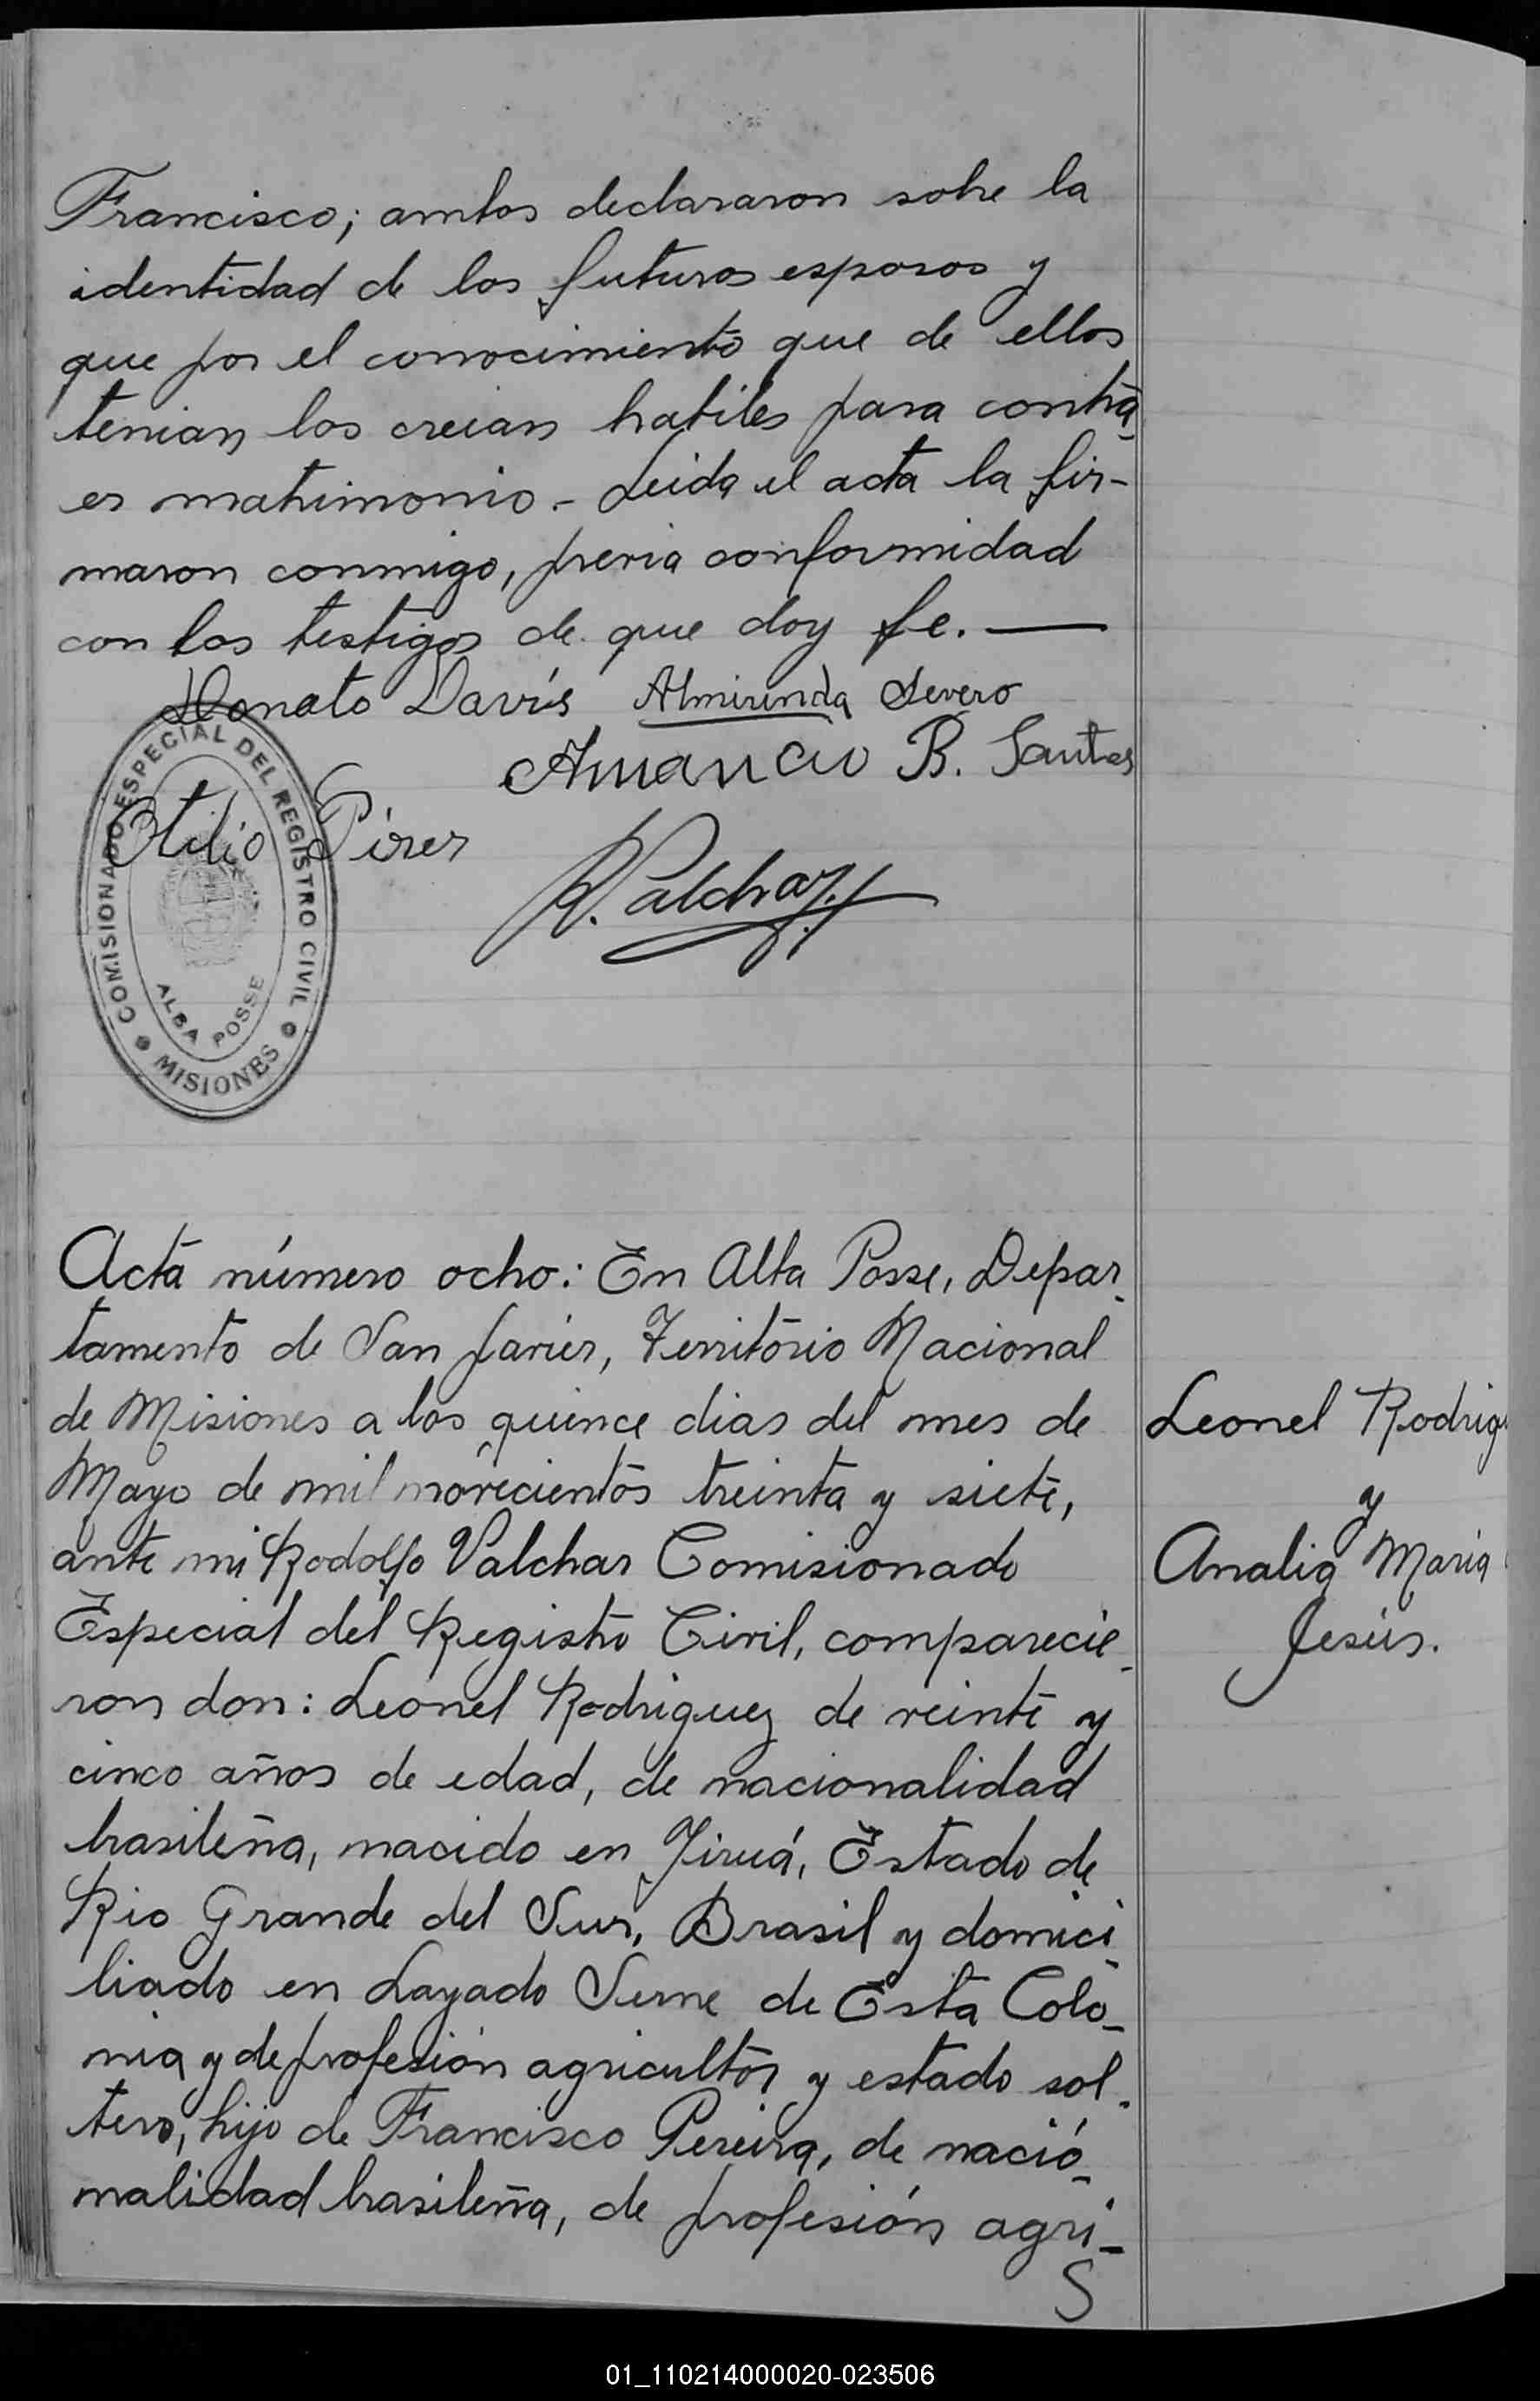 Francisco; ambos declararon sobre la
identidad de los futuros esposos y
que por el conocimiento que de ellos
tenian los creian habiles para contra_
er matrimonio.- Leida el acta la fir-
maron conmigo, previa conformidad
con los testigos de que doy fe. —
Donato Davis Almirinda Severo
Amancio B. Santos
Otilio Pires
R. Valchar
COMISIONADO ESPECIAL DEL REGISTRO CIVIL
ALBA POSSE
MISIONES
Acta número ocho: En Alba Posse, Depar_
tamento de San Javier, Territorio Nacional
de Misiones a los quince dias del mes de
Mayo de mil novecientos treinta y siete,
ante mi Rodolfo Valchar Comisionado
Especial del Registro Civil, comparecie_
ron don: Leonel Rodriguez de veinte y
cinco años de edad, de nacionalidad
brasileña, nacido en Jiruá, Estado de
Rio Grande del Sur, Brasil y domici_
liado en Layado Serne de Esta Colo_
nia y de profesión agricultor y estado sol_
tero, hijo de Francisco Pereira, de nacio_
nalidad brasileña, de profesión agri_
S
Leonel Rodrig
y
Analia Maria
Jesús.
01_110214000020-023506